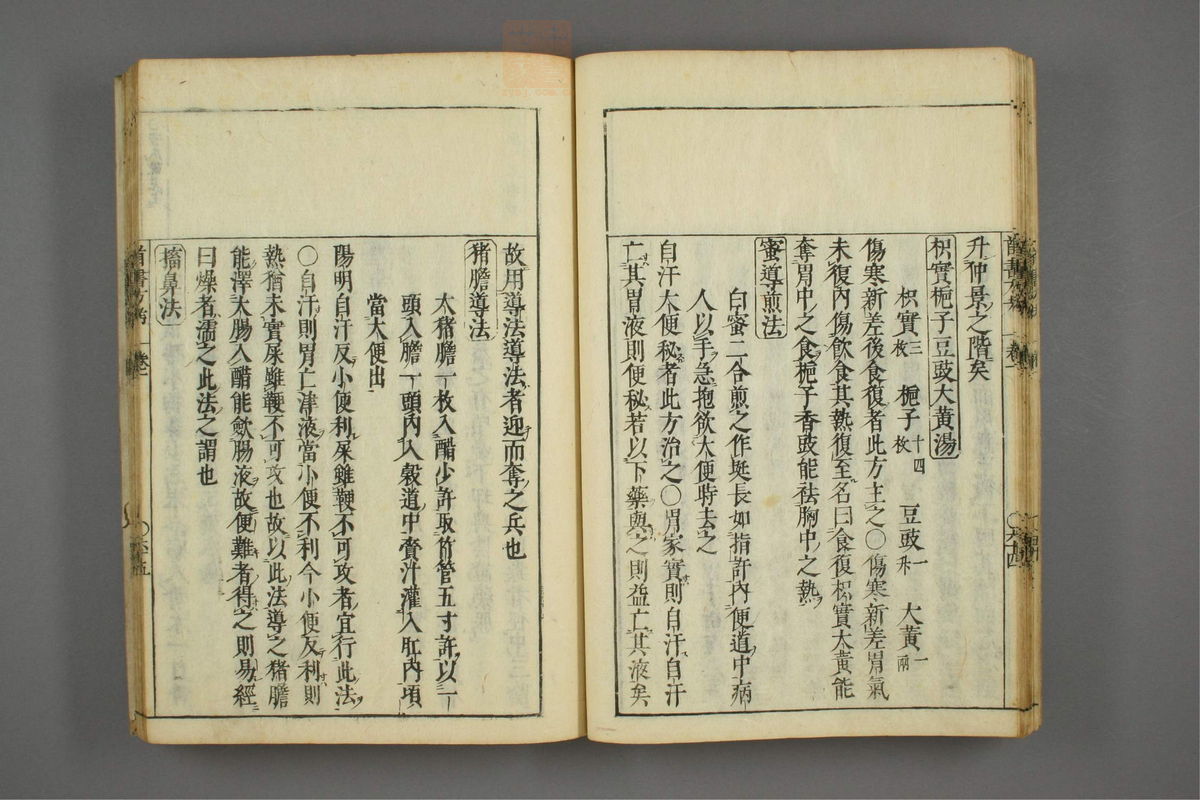 升仲景之階矣
枳實梔子豆豉大黃湯
枳實三枚 梔子十四枚 豆豉一升 大黃一兩
傷寒新差後食復者此方主之〇傷寒新差胃氣
未復內傷飲食其熱復至名曰食復枳實大黃能
奪胃中之食梔子香豉能袪胸中之熱
蜜導煎法
白蜜二合煎之作挺長如指許內便道中病
人以手急抱欲大便時去之
自汗大便秘者此方治之〇胃家實則自汗自汗
亡其胃液則便秘若以下藥與之則益亡其液矣
故用導法導法者迎而奪之兵也
猪膽導法
大猪膽一枚入醋少許取竹管五寸許以一
頭入膽一頭內入穀道中賫汁灌入肛內頃
當大便出
陽明自汗反小便利屎雖鞕不可攻者宜行此法
〇自汗則胃亡津液當小便不利今小便反利則
熱猶未實屎雖鞕不可攻也故以此法導之猪膽
能澤大腸入醋能歛腸液故便難者得之則易經
曰燥者濡之此法之謂也
搐鼻法